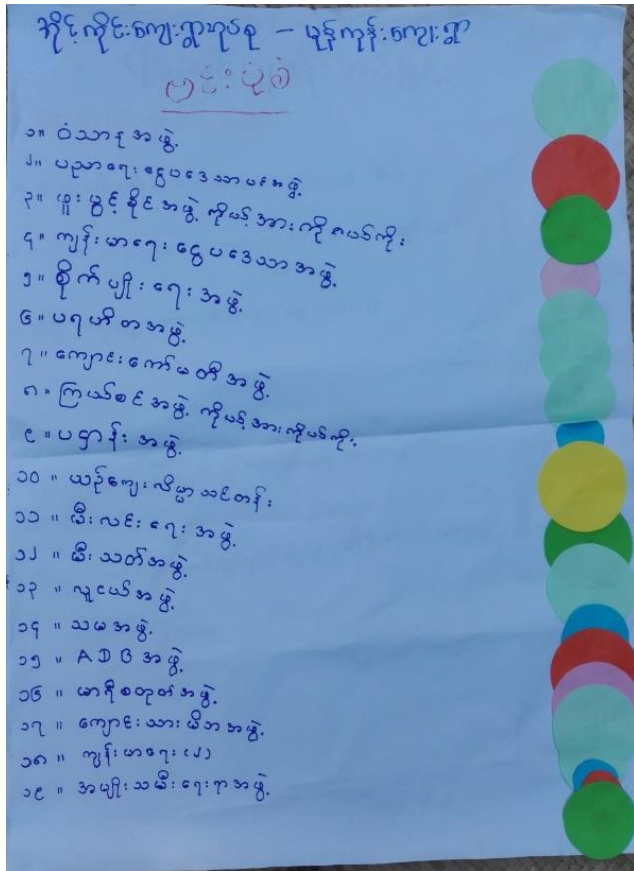 အိုင့်ကိုင်းကျေးရွာအုပ်စု - မုန်ကုန်းကျေးရွာ
ဗင်းပုံစံ
၁။ ဝံသာနုအဖွဲ့
၂။ ပညာရေးငွေပဒေသာပင်အဖွဲ့
၃။ ဖူးပွင့်နိုင်အဖွဲ့ ကိုယ့်အားကိုယ်ကိုး
၄။ ကျန်းမာရေးငွေပဒေသာအဖွဲ့
၅။ စိုက်ပျိုးရေးအဖွဲ့
၆။ ပရဟိတအဖွဲ့
၇။ ကျောင်းကော်မတီအဖွဲ့
၈။ ကြယ်စင်အဖွဲ့ ကိုယ့်အားကိုယ်ကိုး
၉။ ပဌာန်းအဖွဲ့
၁၀။ ယဉ်ကျေးလိမ္မာသင်တန်း
၁၁။ မီးလင်းရေးအဖွဲ့
၁၂။ မီးသတ်အဖွဲ့
၁၃။ လူငယ်အဖွဲ့
၁၄။ သမအဖွဲ့
၁၅။ ADBအဖွဲ့
၁၆။ မာရီစတုတ်အဖွဲ့
၁၇။ ကျောင်းသားမိဘအဖွဲ့
၁၈။ ကျန်းမာရေး(၂)
၁၉။ အမျိုးသမီးရေးရာအဖွဲ့